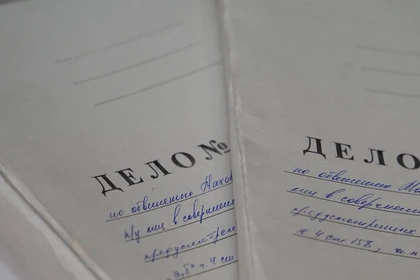 ДЕЛО №
по обвинению Нахо
лиц в соверше
предусмотре
ч. 4 ст
ДЕЛО
по обвинению
лиц в совершени
предусмотренных
ч. 4 ст 158,